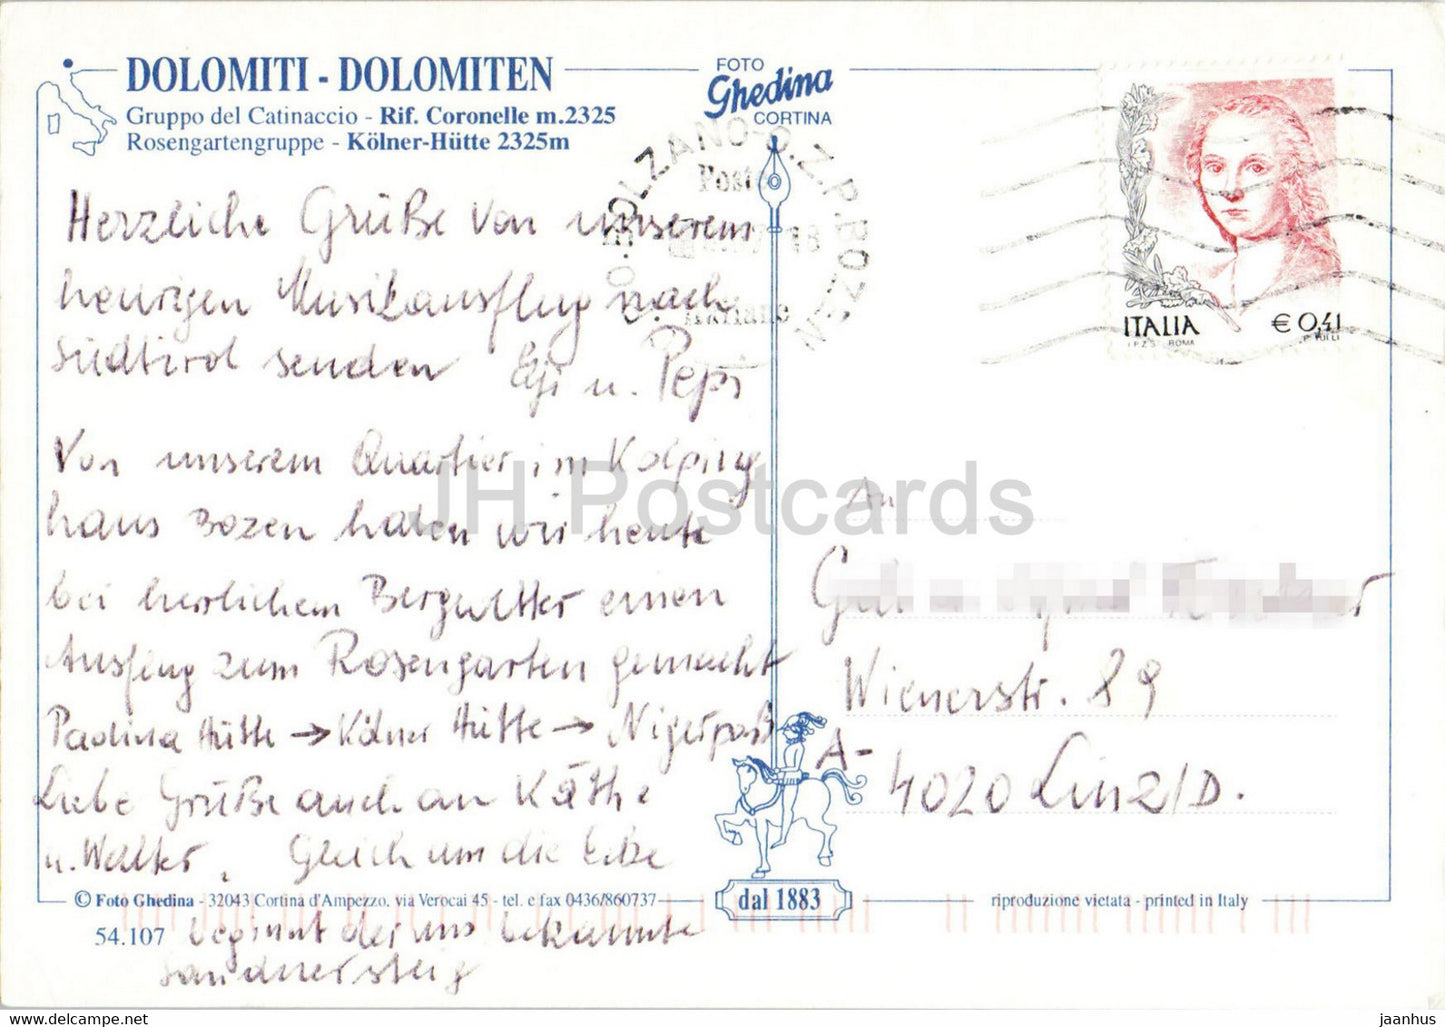 DOLOMITI - DOLOMITEN
Gruppo del Catinaccio - Rif. Coronelle m.2325
Rosengartengruppe - Kölner-Hütte 2325m
FOTO
Ghedina
CORTINA
Herzliche Grüße von unserem
heurigen Musikausflug nach
Südtirol senden
u. Pepi
Von unserem Quartier im Kolping
haus Bozen haben wir heute
bei herrlichem Bergwetter einen
Ausflug zum Rosengarten gemacht
Paolina Hütte → Kölner Hütte → Nigerpaß
Liebe Grüße auch an Käthe
u. Walter. Gleich um die Ecke
beginnt der uns bekannte
Santnersteig
BOLZANO-C.Z.P. BOZEN
Poste
18
Italiane
ITALIA € 0,41
I.P.Z.S. ROMA
An
Wienerstr. 89
A-
4020 Linz/D.
© Foto Ghedina - 32043 Cortina d'Ampezzo, via Verocai 45 - tel. e fax 0436/860737
dal 1883
riproduzione vietata - printed in Italy
54.107
JH Postcards
www.delcampe.net
jaanhus